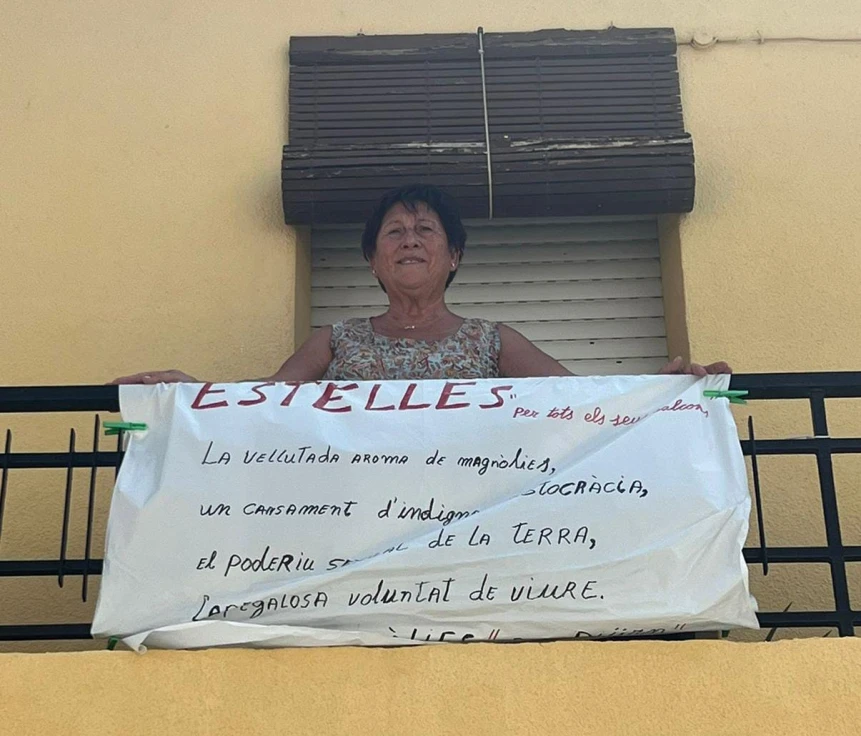 ESTELLES" per tots els seus
LA VELLUTADA AROMA DE MAGNÒLIES,
UN CANSAMENT d'indigna
EL PODERIU DE LA TERRA,
LA REGALOSA VOLUNTAT DE VIURE.